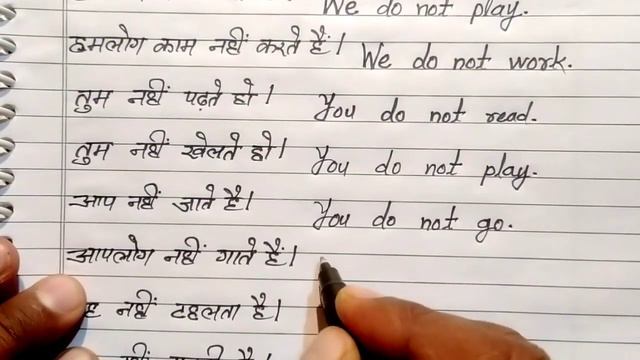 We do not play.
हमलोग काम नहीं करते हैं। We do not work.
तुम नहीं पढ़ते हो। You do not read.
तुम नहीं खेलते हो। You do not play.
आप नहीं जाते हैं। You do not go.
आपलोग नहीं गाते हैं।
नहीं टहलता है।